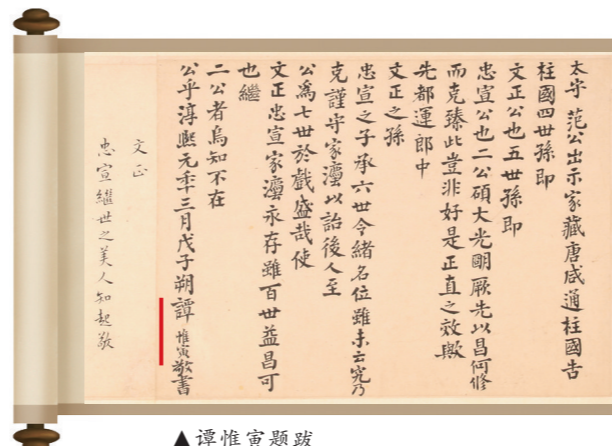 太守 范公出示家藏唐咸通柱國告
柱國四世孫即
文正公也五世孫即
忠宣公也二公碩大光明厥先以昌何修
而克臻此豈非好是正直之效歟
先都運郎中
文正之孫
忠宣之子承六世令緒名位雖未云究乃
克謹守家灋以詒後人至
公為七世於戲盛哉使
文正忠宣家灋永存雖百世益昌可
也繼
二公者烏知不在
公乎淳熙元年三月戊子朔譚惟寅敬書
文正
忠宣繼世之美人知起敬
▲谭惟寅题跋